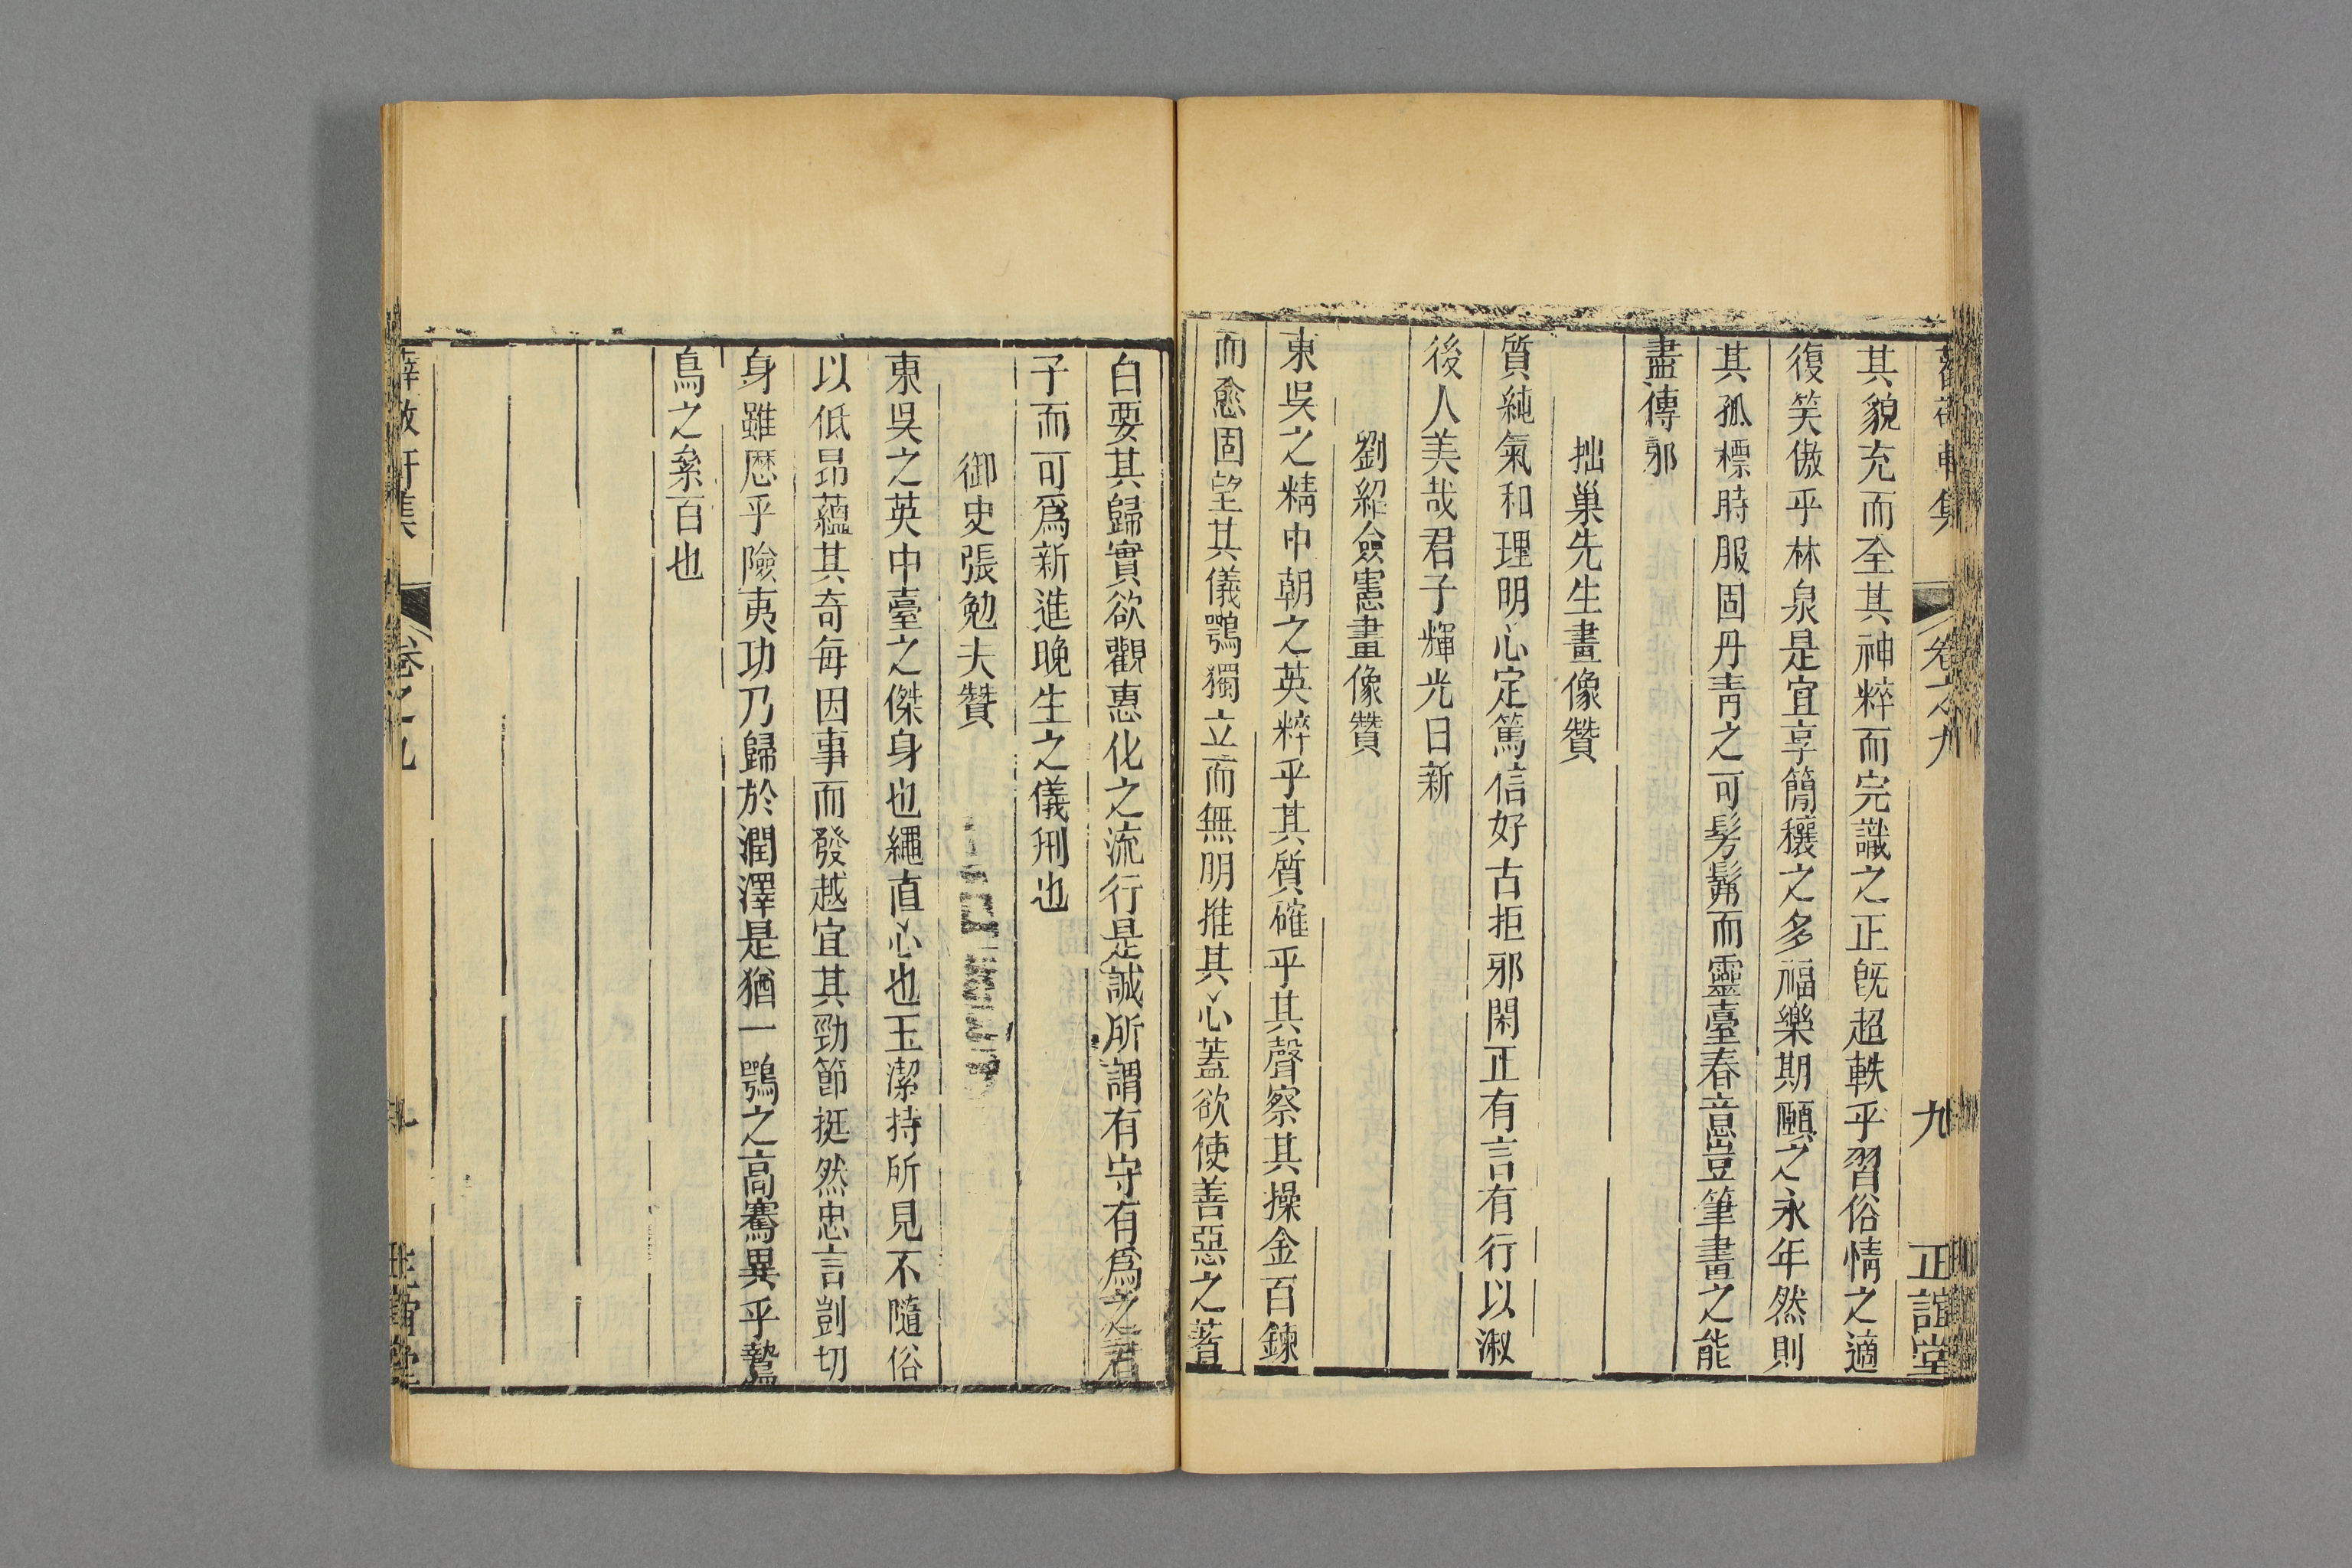 其貌充而全其神粹而完識之正旣超軼乎習俗情之適
復笑傲乎林泉是宜享簡穰之多福樂期願之永年然則
其孤標時服固丹靑之可髣髴而靈臺春意豈筆畫之能
盡傳郭
拙巢先生畫像贊
質純氣和理明心定篤信好古拒邪閑正有言有行以淑
後人美哉君子輝光日新
劉紹僉憲畫像贊
東吳之精中朝之英粹乎其質確乎其聲察其操金百鍊
而愈固望其儀鶚獨立而無朋推其心蓋欲使善惡之著
白要其歸實欲觀惠化之流行是誠所謂有守有爲之君
子而可爲新進晚生之儀刑也
御史張勉夫贊
東吳之英中臺之傑身也繩直心也玉潔持所見不隨俗
以低昂蘊其奇每因事而發越宜其勁節挺然忠言剴切
身雖歷乎險夷功乃歸於潤澤是猶一鶚之高騫異乎鷙
鳥之絫百也
卷之九
九
正誼堂